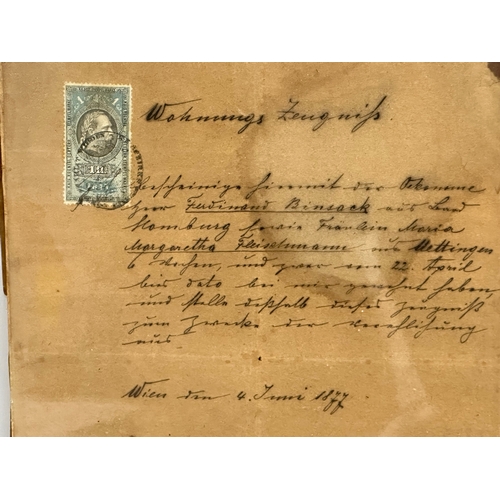 Wohnungs Zeugniß.
Bescheinige hiermit das
Herr Ferdinand Binsack aus Bad
Homburg sowie Fräulein Maria
Margaretha Fleischmann aus Uettingen
6 Wochen, und zwar vom 22. April
bis dato bei mir gewohnt haben,
und stelle deßhalb dieses Zeugniß
zum Zwecke der Verehlichung
aus
Wien den 4. Juni 1877